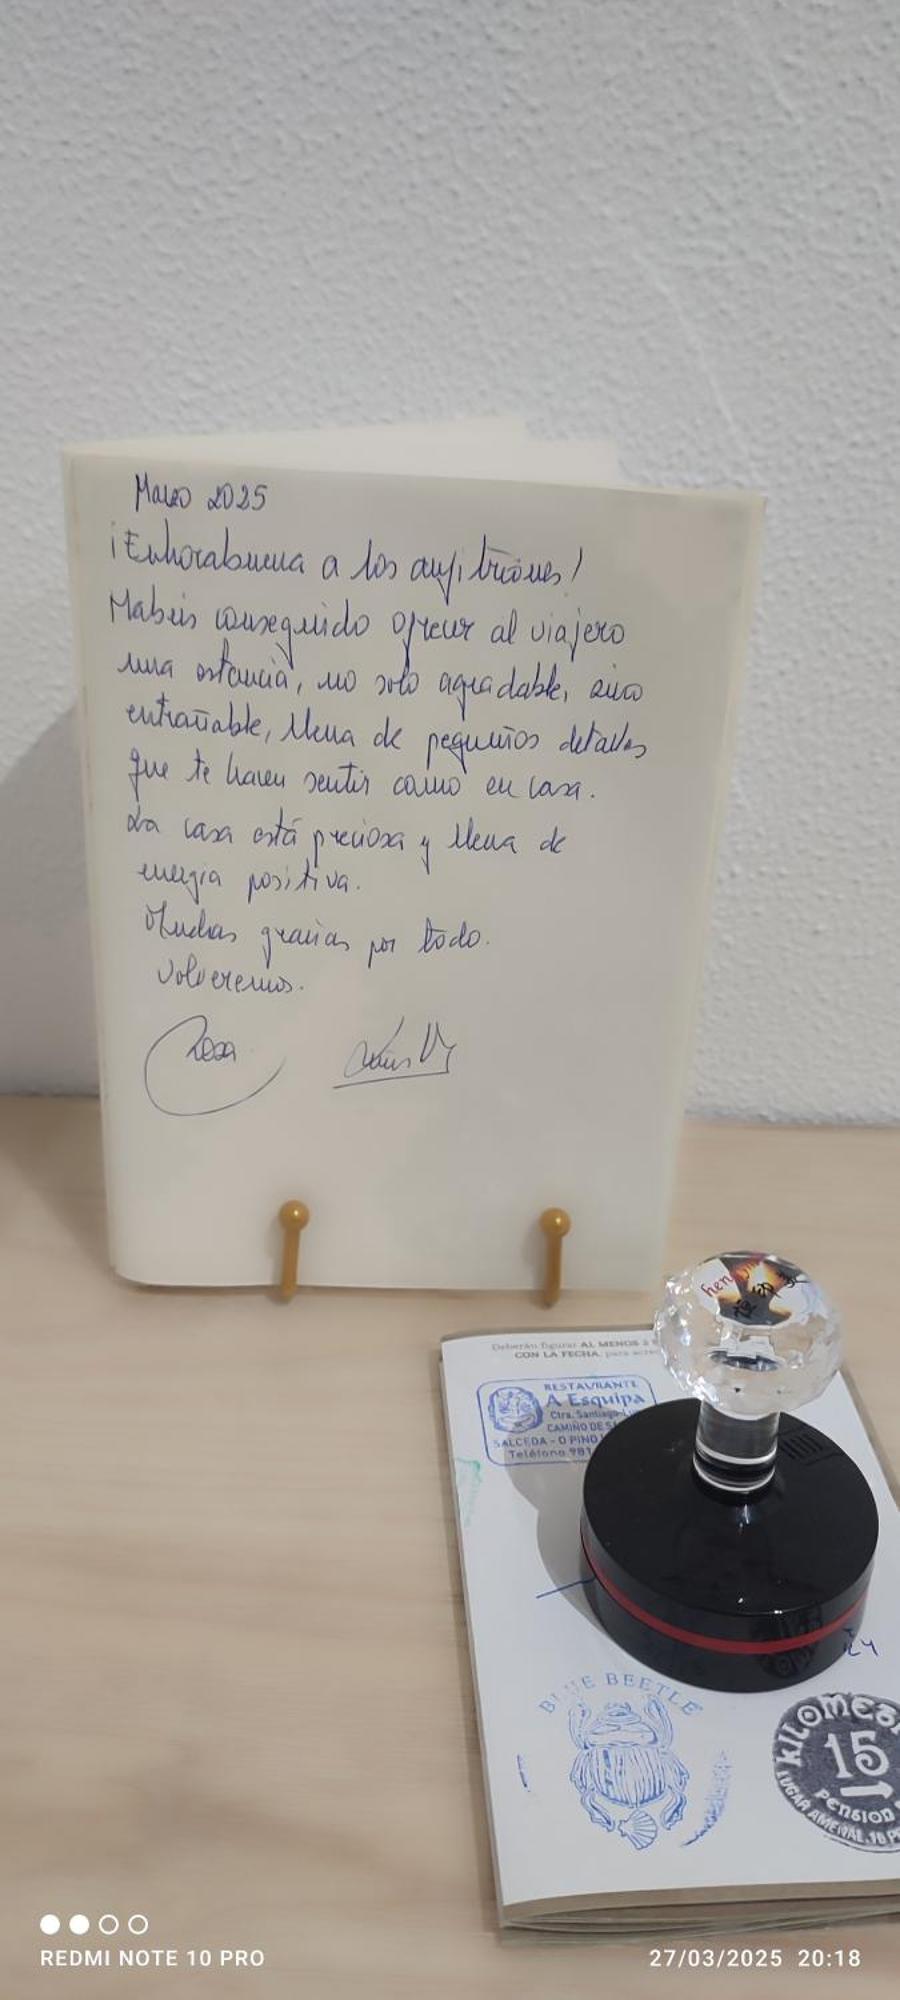 Marzo 2025
¡Enhorabuena a los anfitriones!
Habéis conseguido ofrecer al viajero
una estancia, no solo agradable, sino
entrañable, llena de pequeños detalles
que te hacen sentir como en casa.
La casa está preciosa y llena de
energía positiva.
Muchas gracias por todo.
Volveremos.
Rosa
Deberán figurar AL MENOS 2
CON LA FECHA, para
RESTAURANTE
A Esquipa
Ctra. Santiago-Lu
CAMIÑO DE S
SALCEDA - O PINO
Teléfono 981
BLUE BEETLE
KILOMET
15
PENSION
LUGAR AMENAL, 18
REDMI NOTE 10 PRO
27/03/2025 20:18